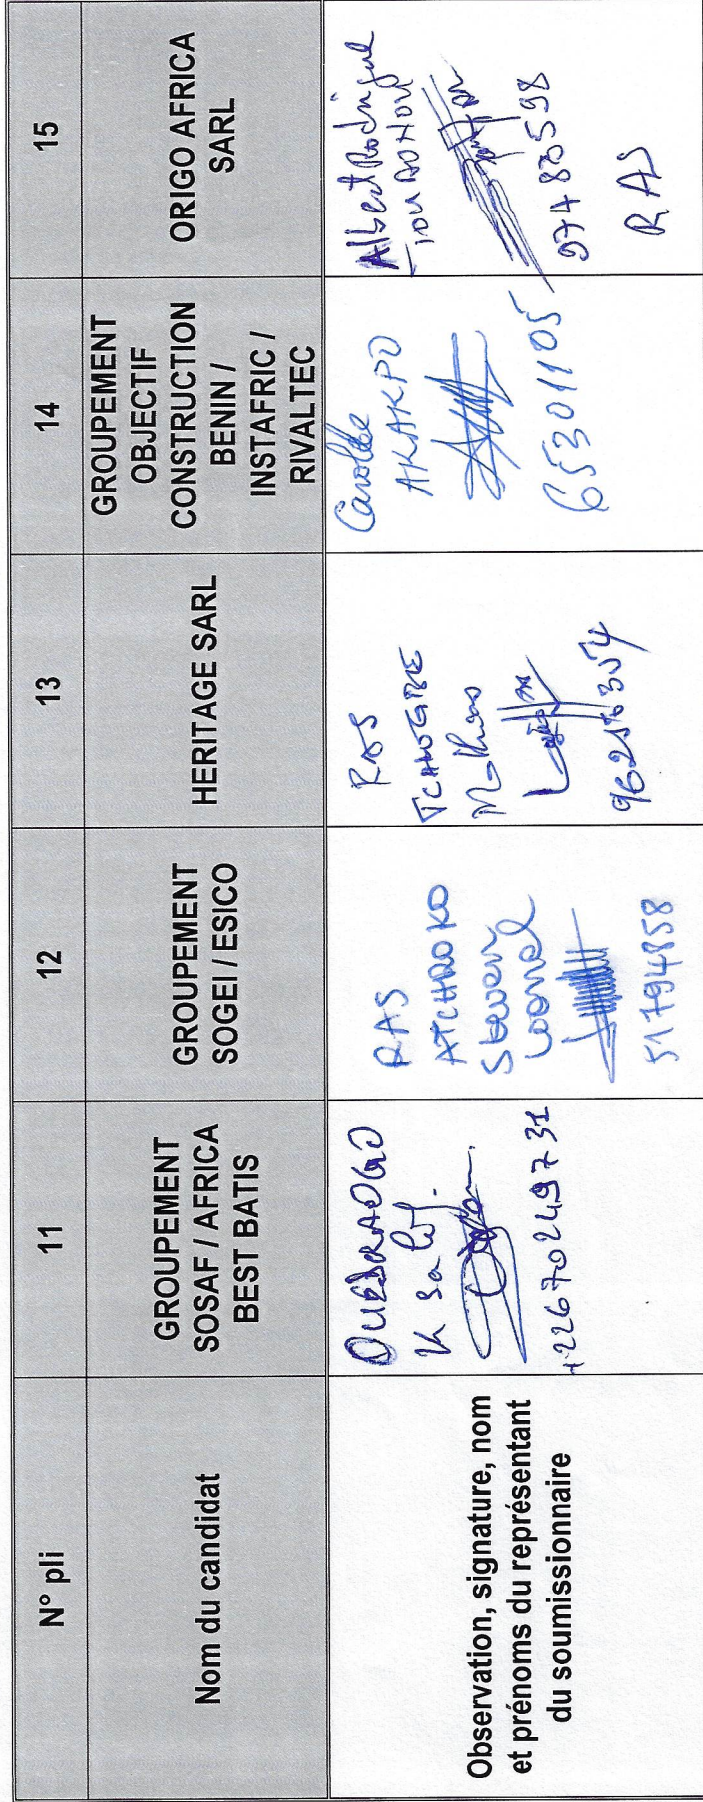 N° pli
11
12
13
14
15
Nom du candidat
GROUPEMENT
SOSAF / AFRICA
BEST BATIS
GROUPEMENT
SOGEI / ESICO
HERITAGE SARL
GROUPEMENT
OBJECTIF
CONSTRUCTION
BENIN /
INSTAFRIC /
RIVALTEC
ORIGO AFRICA
SARL
Observation, signature, nom
et prénoms du représentant
du soumissionnaire
OUEDRAOGO
K
+22670249731
RAS
ATCHROKO
51794858
RAS
TCHOGBE
AKAKPO
65301105
Albert Rodrigue
97480598
RAS